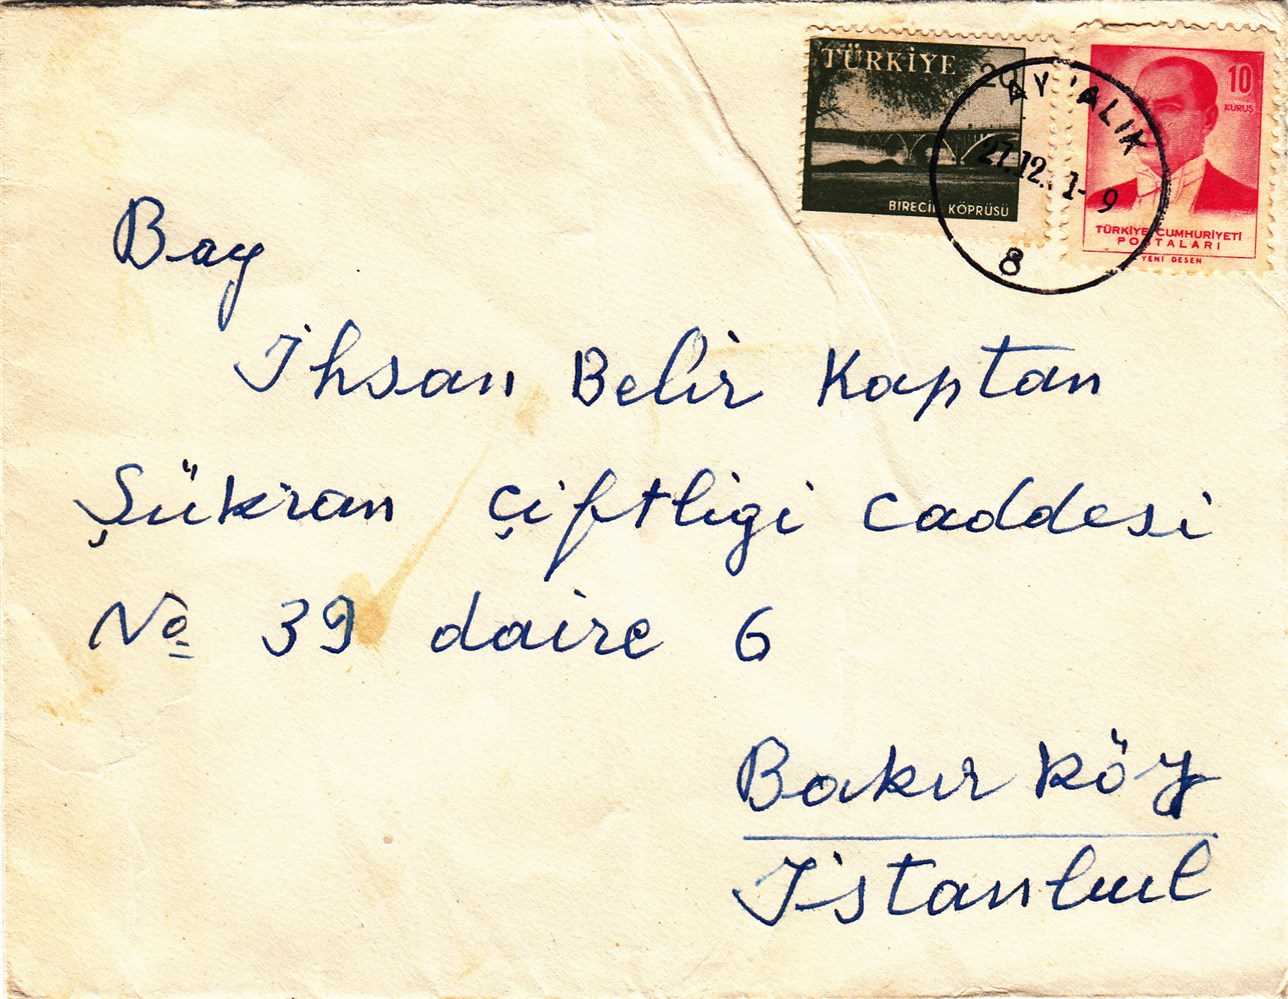 TÜRKİYE 20
BİRECİK KÖPRÜSÜ
10
KURUŞ
TÜRKİYE CUMHURİYETİ
POSTALARI
YENİ DESEN
AYVALIK
27.12. 1-9
8
Bay
İhsan Belir Kaptan
Şükran Çiftligi Caddesi
No 39 daire 6
Bakırköy
İstanbul